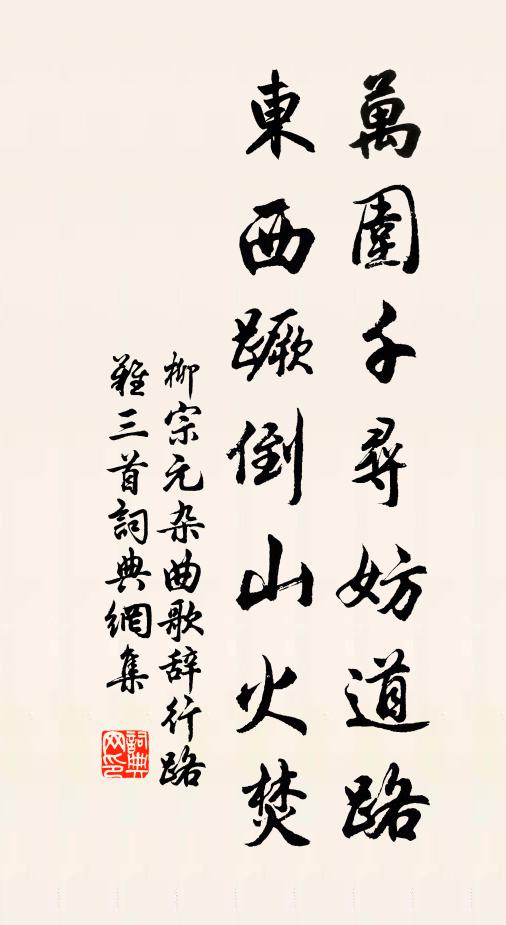 萬圍千尋妨道路
東西蹶倒山火焚
柳宗元杂曲歌辞行路
難三首詞典網集
詞典
网印